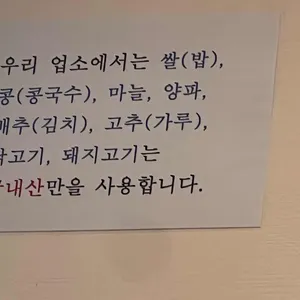 우리 업소에서는 쌀(밥),
콩(콩국수), 마늘, 양파,
배추(김치), 고추(가루),
닭고기, 돼지고기는
국내산만을 사용합니다.